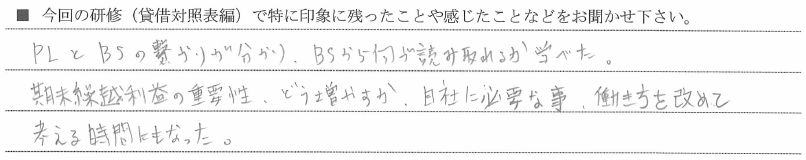 ■ 今回の研修（貸借対照表編）で特に印象に残ったことや感じたことなどをお聞かせ下さい。
PLとBSの繋がりが分かり、BSから何が読み取れるか学べた。
期末繰越利益の重要性、どう増やすか、自社に必要な事、働き方を改めて
考える時間にもなった。